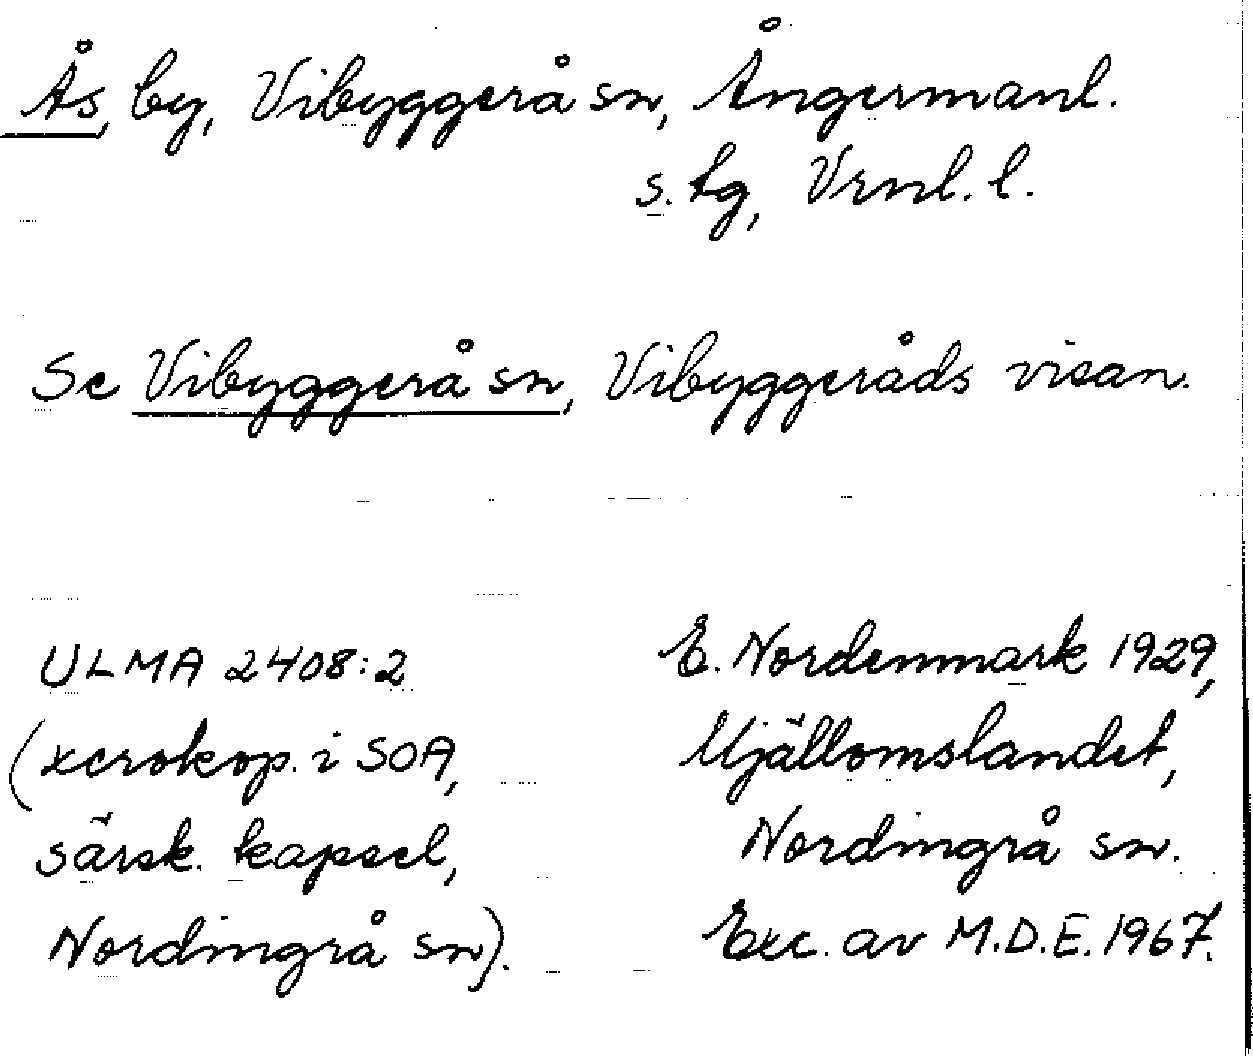 Ås, by, Vibyggerå sn, Ångermanl.
s. tg, Vrnl. l.
Se Vibyggerå sn, Vibyggeråds visan.
ULMA 2408:2
(xerokop. i SOA,
särsk. kapsel,
Nordingrå sn).
E. Nordenmark 1929,
Mjällomslandet,
Nordingrå sn.
Exc. av M.D.E. 1967.